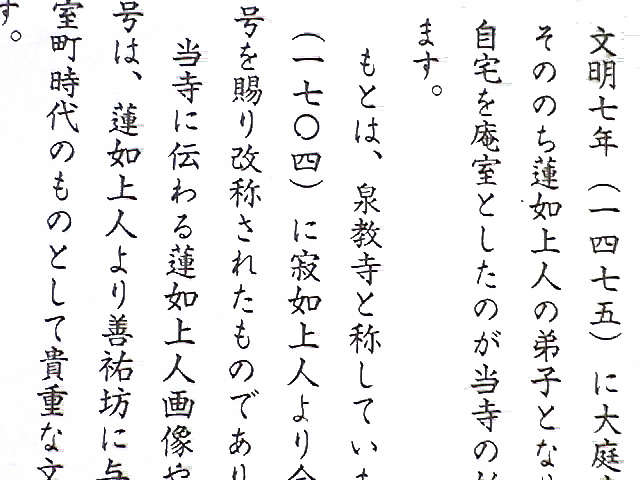 文明七年（一四七五）に大庭
そののち蓮如上人の弟子とな
自宅を庵室としたのが当寺の
ます。
もとは、泉教寺と称してい
（一七〇四）に寂如上人より
号を賜り改称されたものであり
当寺に伝わる蓮如上人画像や
号は、蓮如上人より善祐坊に与
室町時代のものとして貴重な文
す。